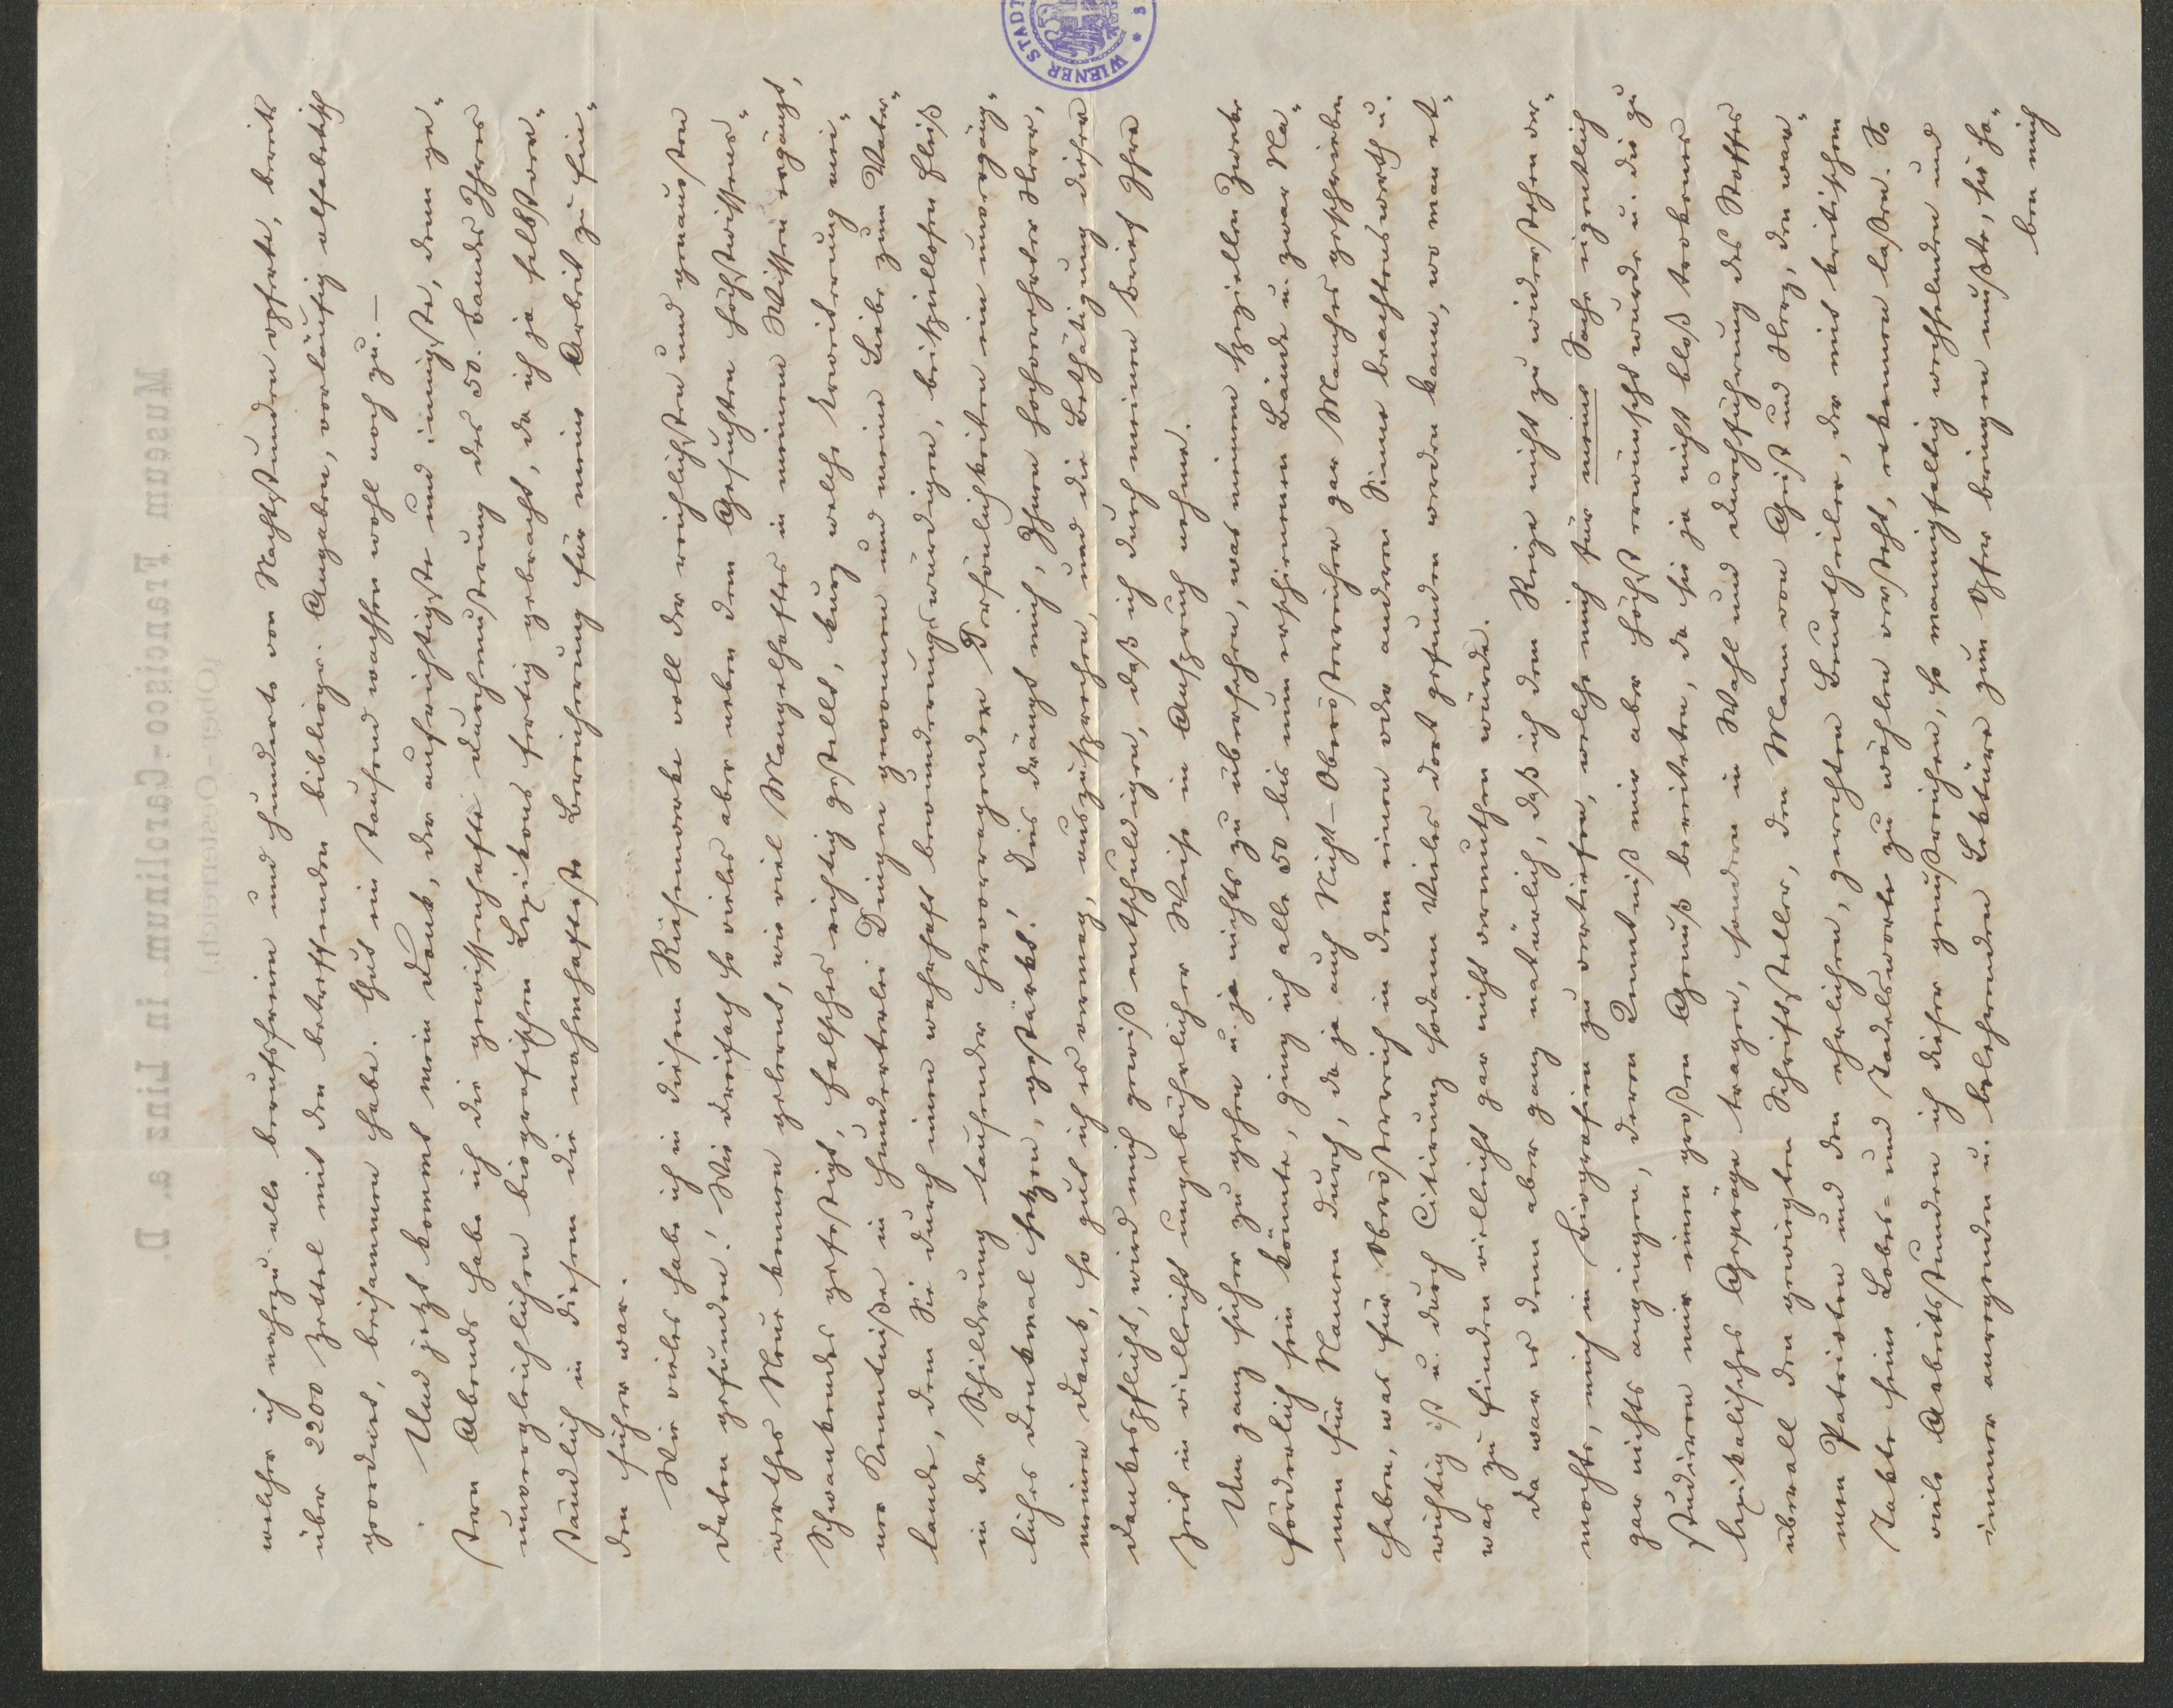 welcher ich nahezu alle berufsfreien und hunderte von Nachtstunden opferte, bereits
über 2200 Zettel mit den betreffenden bibliogr. Angaben, vorläufig alfabetisch
geordnet, beisammen habe. Gut ein tausend wachsen wohl noch zu. —
Und jetzt kommt mein Dank, der aufrichtigste und innigste, denn ge„
stern Abends habe ich die gewissenhafte Durchmusterung des 50. Bandes Ihres
unvergleichlichen biografischen Lexikons fertig gebracht, da ich ja selbstver„
ständlich in diesem die nahmhafteste Bereicherung für meine Arbeit zu fin„
den sicher war.
Wie vieles habe ich in diesem Riesenwerke voll der reichlichsten und genauesten
Daten gefunden! Wie dreifach so vieles aber neben dem Gesuchten höchstwissens„
werthes Neue kennen gelernt, wie viel Mangelhaftes in meinem Wissen ergänzt,
Schwankendes gefestigt, falsches richtig gestellt, kurz welche Erweiterung mei„
ner Kenntniße in hunderterlei Dingen gewonnen und meine Liebe zum Vater„
lande, dem Sie durch einen wahrhaft bewunderungswürdigen, beispiellosen Fleiß
in der Schilderung tausender hervorragender Persönlichkeiten ein unvergäng„
liches Denkmal setzen, gestärkt! Dies drängt mich, Ihnen hochverehrter Herr,
meinen Dank, so gut ich es vermag, auszusprechen, und die Bethätigung dieser
Dankespflicht, wird mich gewiß entschuldigen, daß ich durch meinen Brief Ihre
Zeit in vielleicht ungebührlicher Weise in Anspruch nehme.
Um ganz sicher zu gehen u. ja nichts zu übersehen, was meinem speziellen Zwecke
förderlich sein könnte, ging ich alle 50 bis nun erschienenen Bände u. zwar Na„
men für Namen durch, da ja auch Nicht-Oberösterreicher gar Manches geschrieben
haben, was für Oberösterreich in dem einen oder anderen Sinne beachtenswerth u.
wichtig ist u. durch Citierung sodann Vieles dort gefunden werden kann, wo man et„
was zu finden vielleicht gar nicht vermuthen würde.
Da war es denn aber ganz natürlich, daß ich dem Reize nicht zu widerstehen ver„
mochte, mich in Biografien zu vertiefen, welche mich für meine Sache eigentlich
gar nichts angingen, deren Kenntniß mir aber höchst erwünscht wurde u. die zu
studieren mir einen großen Genuß bereiteten, da sie ja nicht bloß trockenes
lexikalisches Gepräge tragen, sondern in Wahl und Durchführung des Stoffes
überall den gewiegten Schriftsteller, den Mann von Geist und Herz, den war„
men Patrioten und den ehrlichen, gerechten Beurtheiler, der mit kritischem
Takte seine Lobes= und Tadelsworte zu wählen versteht, erkennen laßen. So
viele Arbeitsstunden ich dieser genußreichen, so mannigfaltig wechselnden und
immer anregenden u. belehrenden Lektüre zum Opfer bringen mußte, sie ha„
ben mich
Museum Francisco-Carolinum in Linz a. D.
(Ober-Oesterreich.)
WIENER STADT